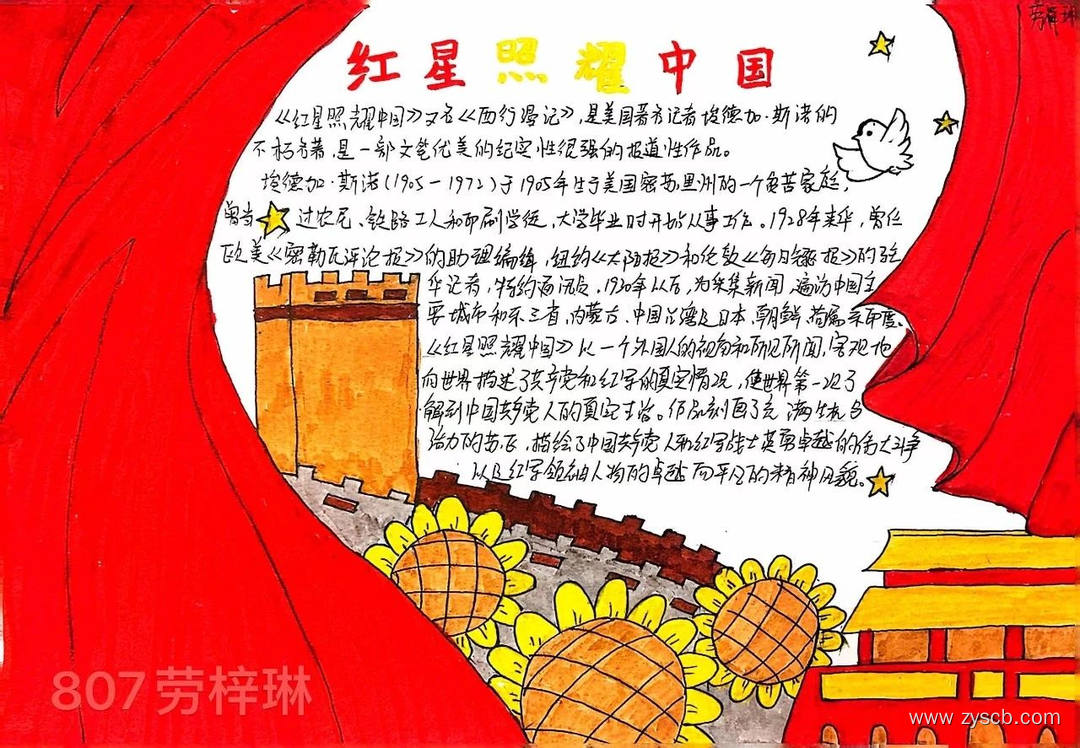 劳梓琳
红星照耀中国
《红星照耀中国》又名《西行漫记》,是美国著名记者埃德加·斯诺的
不朽名著,是一部文笔优美的纪实性很强的报道性作品。
埃德加·斯诺(1905-1972)于1905年生于美国密苏里洲的一个贫苦家庭,
曾当过农民、铁路工人和印刷学徒,大学毕业时开始从事工作。1928年来华,曾任
欧美《密勒氏评论报》的助理编辑,纽约《太阳报》和伦敦《每日先驱报》的驻
华记者,特约通讯员。1930年以后,为采集新闻,遍访中国主
要城市和东三省,内蒙古、中国台湾及日本、朝鲜、荷属东印度。
《红星照耀中国》以一个外国人的视角和所见所闻,客观地
向世界描述了共产党和红军的真实情况,使世界第一次了
解到中国共产党人的真实生活。作品刻画了充满生机与
活力的苏区,描绘了中国共产党人和红军战士英勇卓越的伟大斗争
以及红军领袖人物的卓越而平凡的精神风貌。
807 劳梓琳
www.zyscb.com